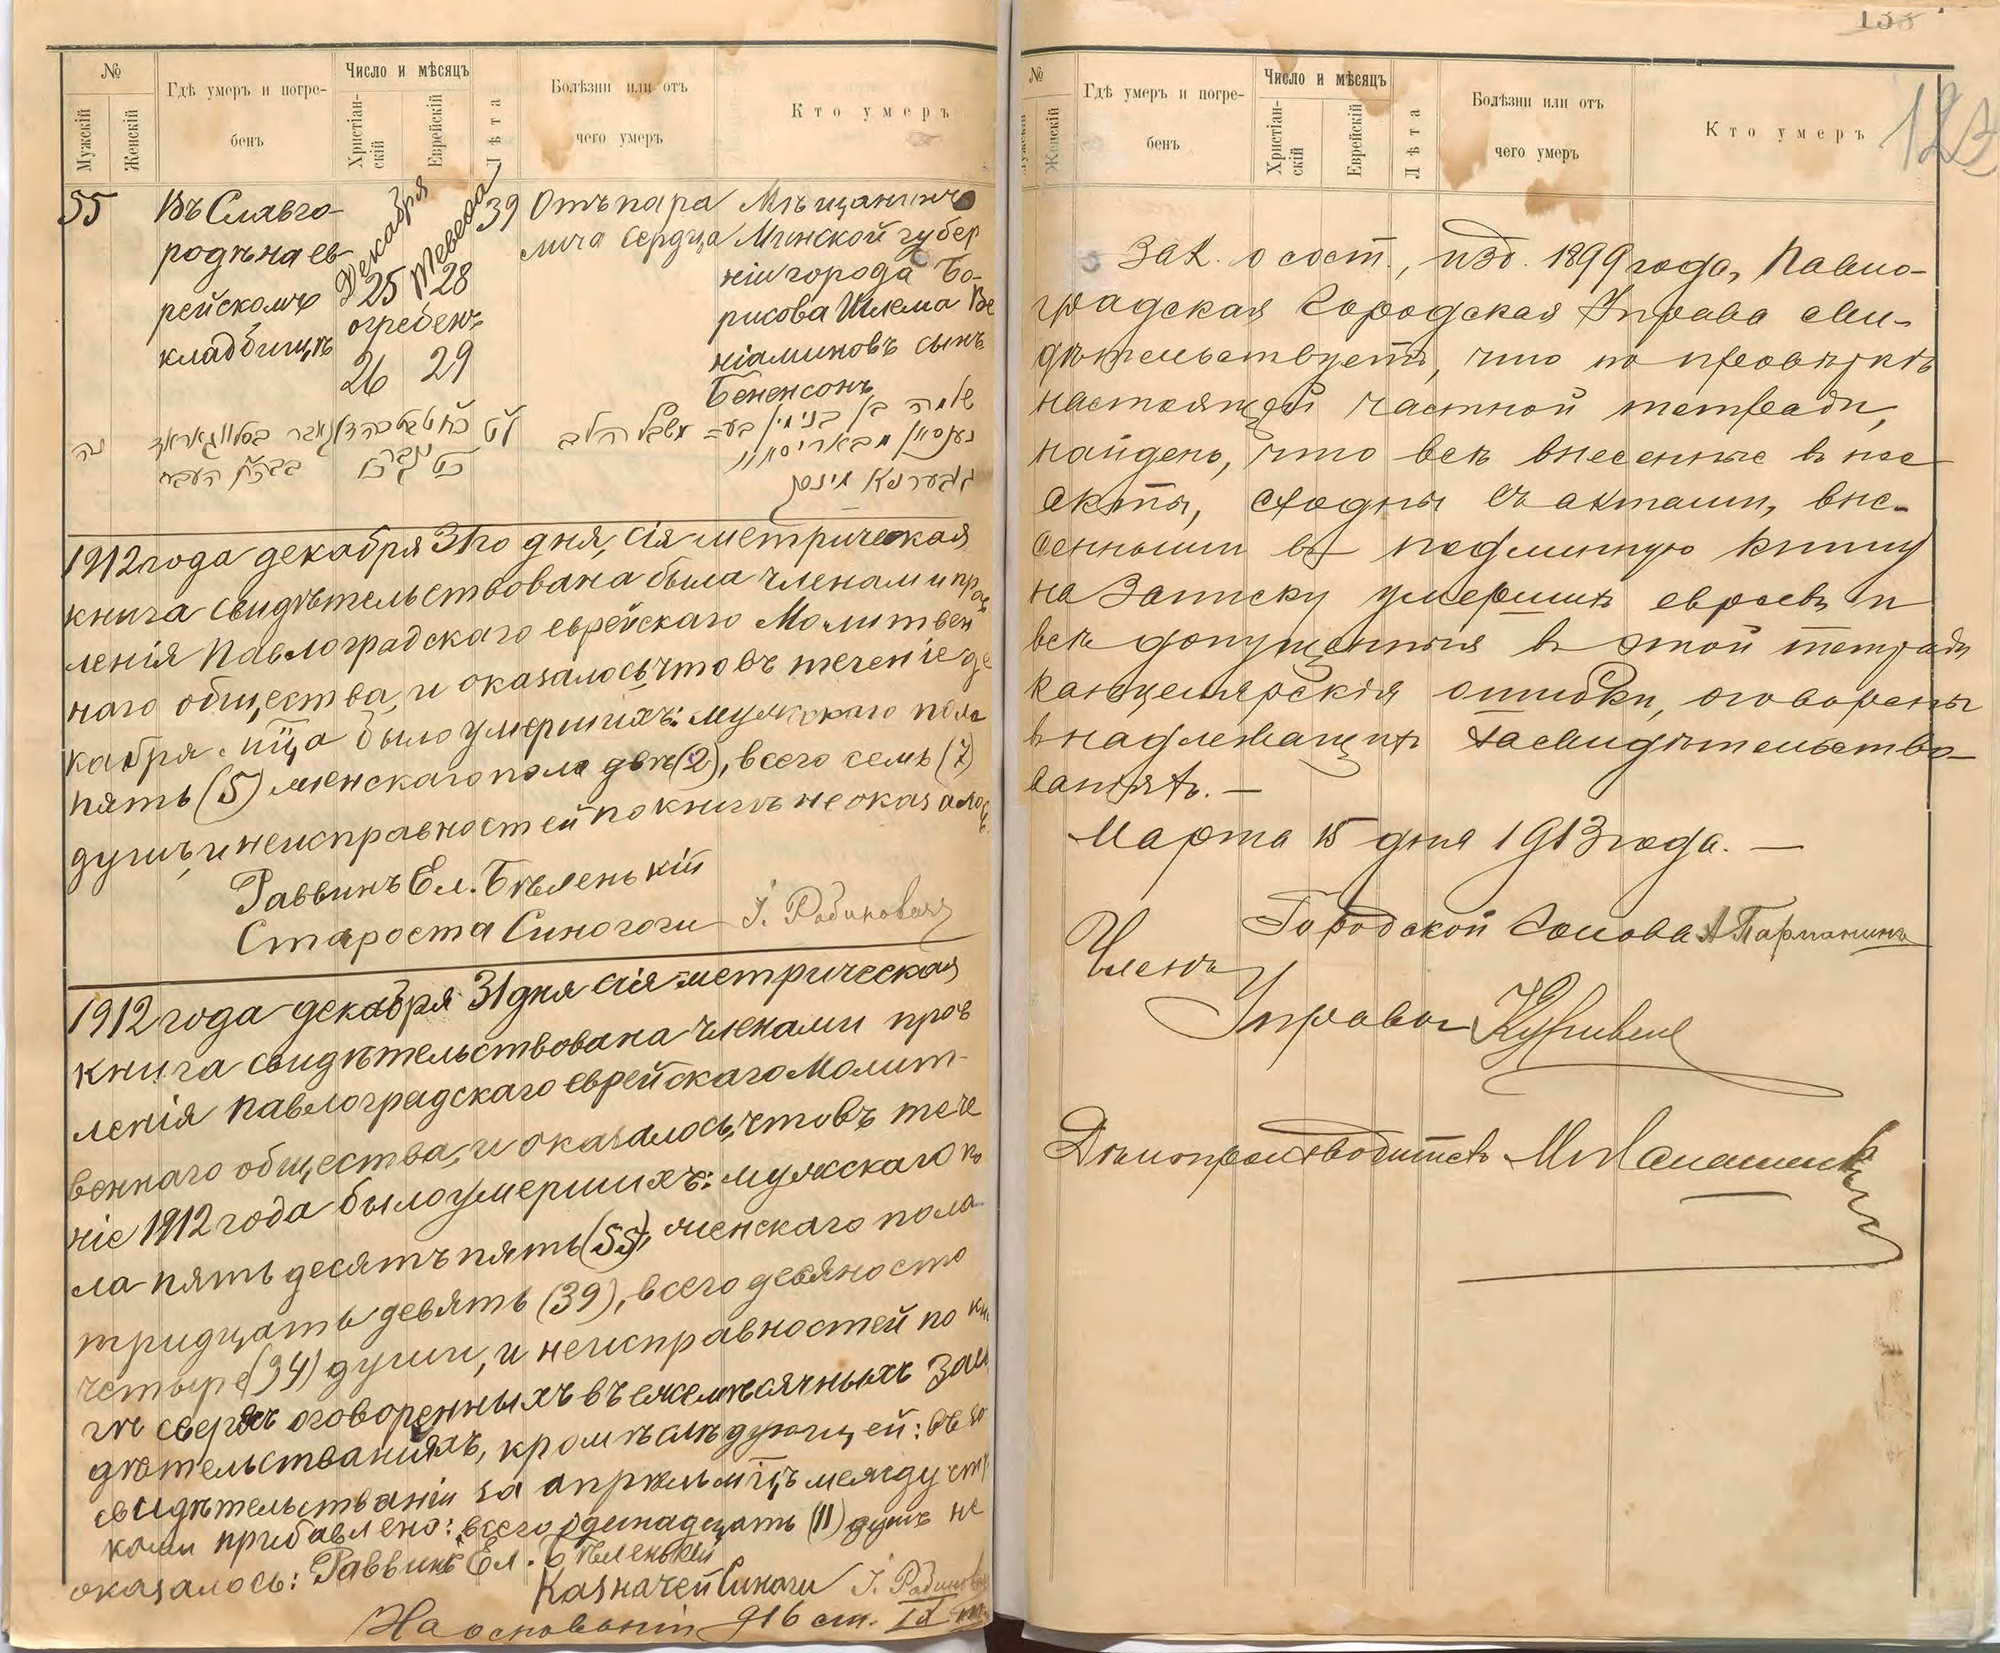 №
Мужскій
Женскій
Гдѣ умеръ и погре-
бенъ
Число и мѣсяцъ
Христіан-
скій
Еврейскій
Лѣта
Болѣзни или отъ
чего умеръ
Кто умеръ
55
Въ Славго-
родѣ на ев-
рейскомъ
кладбищѣ
Декабря
25
Тевеса
28
огребенъ
26 29
39
Отъ пара
лича сердца
Мѣщанинъ
Минской губер
ніи города Бо-
рисова Шлема Ве
ніаминовъ сынъ
Бененсонъ
נה
לט
שלמה בן בנימין בע=
נענסאן מבאריסאוו
גובערניא מינסק
1912 года декабря 31го дня, сія метрическая
книга свидѣтельствована была членами прав
ленія Павлоградскаго еврейскаго Молитвен
наго общества, и оказалось что въ теченіе де
кабря м-ца было умершихъ: мужскаго пола
пять (5) женскаго пола двѣ (2), всего семь (7)
душъ, и неисправностей по книгѣ не оказалось
Раввинъ Ел. Бѣленькій
Староста Синогоги І. Рабиновичъ
1912 года декабря 31 дня сія метрическая
книга свидѣтельствована членами прав
ленія Павлоградскаго еврейскаго Молит-
веннаго общества, и оказалось, что въ тече
ніе 1912 года было умершихъ: мужскаго по
ла пятьдесятъ пять (55), женскаго пола
тридцать девять (39), всего девяносто
четыре (94) души, и неисправностей по кни
гѣ сверхъ оговоренныхъ въ ежемѣсячныхъ засви
дѣтельстваніяхъ, кромѣ слѣдующей: въ за
свидѣтельстваніи за апрѣль м-цъ между стр
ками прибавлено: всего одинадцать (11) душъ не
оказалось: Раввинъ Ел. Бѣленькій
Казначей Синоги І. Рабинович
На основаніи 916 ст. IX т.
133
№
Мужскій
Женскій
Гдѣ умеръ и погре-
бенъ
Число и мѣсяцъ
Христіан-
скій
Еврейскій
Лѣта
Болѣзни или отъ
чего умеръ
Кто умеръ
Зак. о сост., изд. 1899 года, Павло-
градская Городская Управа сви-
дѣтельствуетъ, что по провѣркѣ
настоящей частной тетради,
найдено, что всѣ внесенные въ нее
акты, сходны съ актами, вне-
сенными въ подлинную книгу
на записку умершихъ евреевъ и
всѣ допущенныя въ этой тетради
канцелярскія ошибки, оговорены
въ надлежащихъ засвидѣтельство-
ваніяхъ. —
Марта 15 дня 1913 года. —
Городской Голова
Членъ
Управы
Дѣлопроизводитель